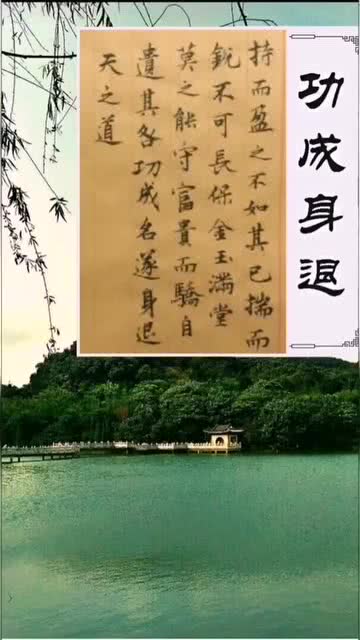 功成身退
持而盈之不如其已揣而
銳不可長保金玉滿堂
莫之能守富貴而驕自
遺其各功成名遂身退
天之道